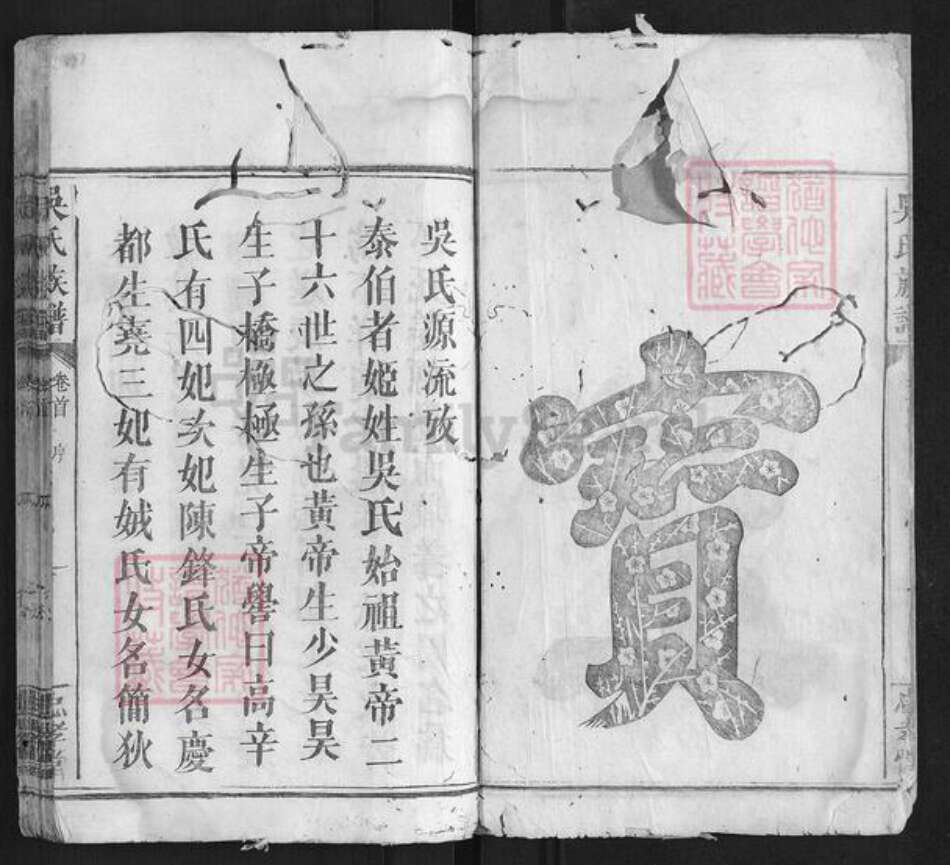 寶
吳氏源流攷
泰伯者姬姓吳氏始祖黃帝二
十六世之孫也黃帝生少昊昊
生子橋極極生子帝嚳曰高辛
氏有四妃次妃陳鋒氏女名慶
都生堯三妃有娀氏女名簡狄
吳氏族譜
卷首
序